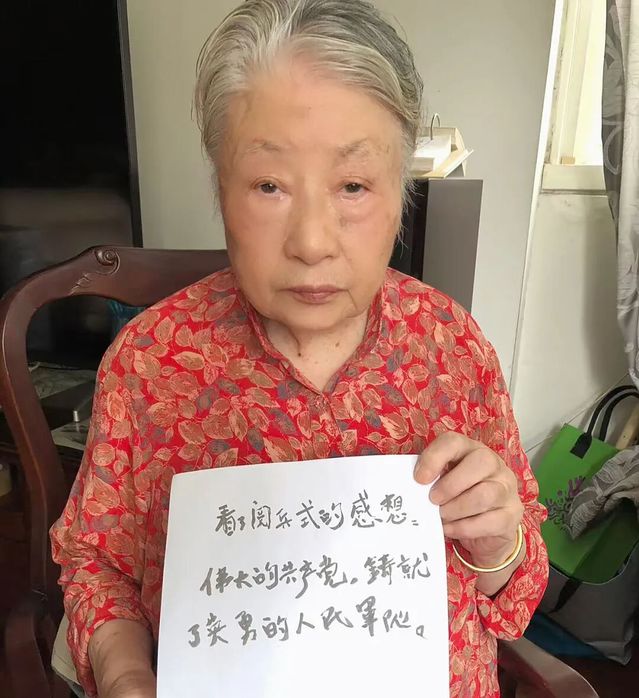 看了阅兵式的感想：
伟大的共产党。鑄就
了英勇的人民軍队。